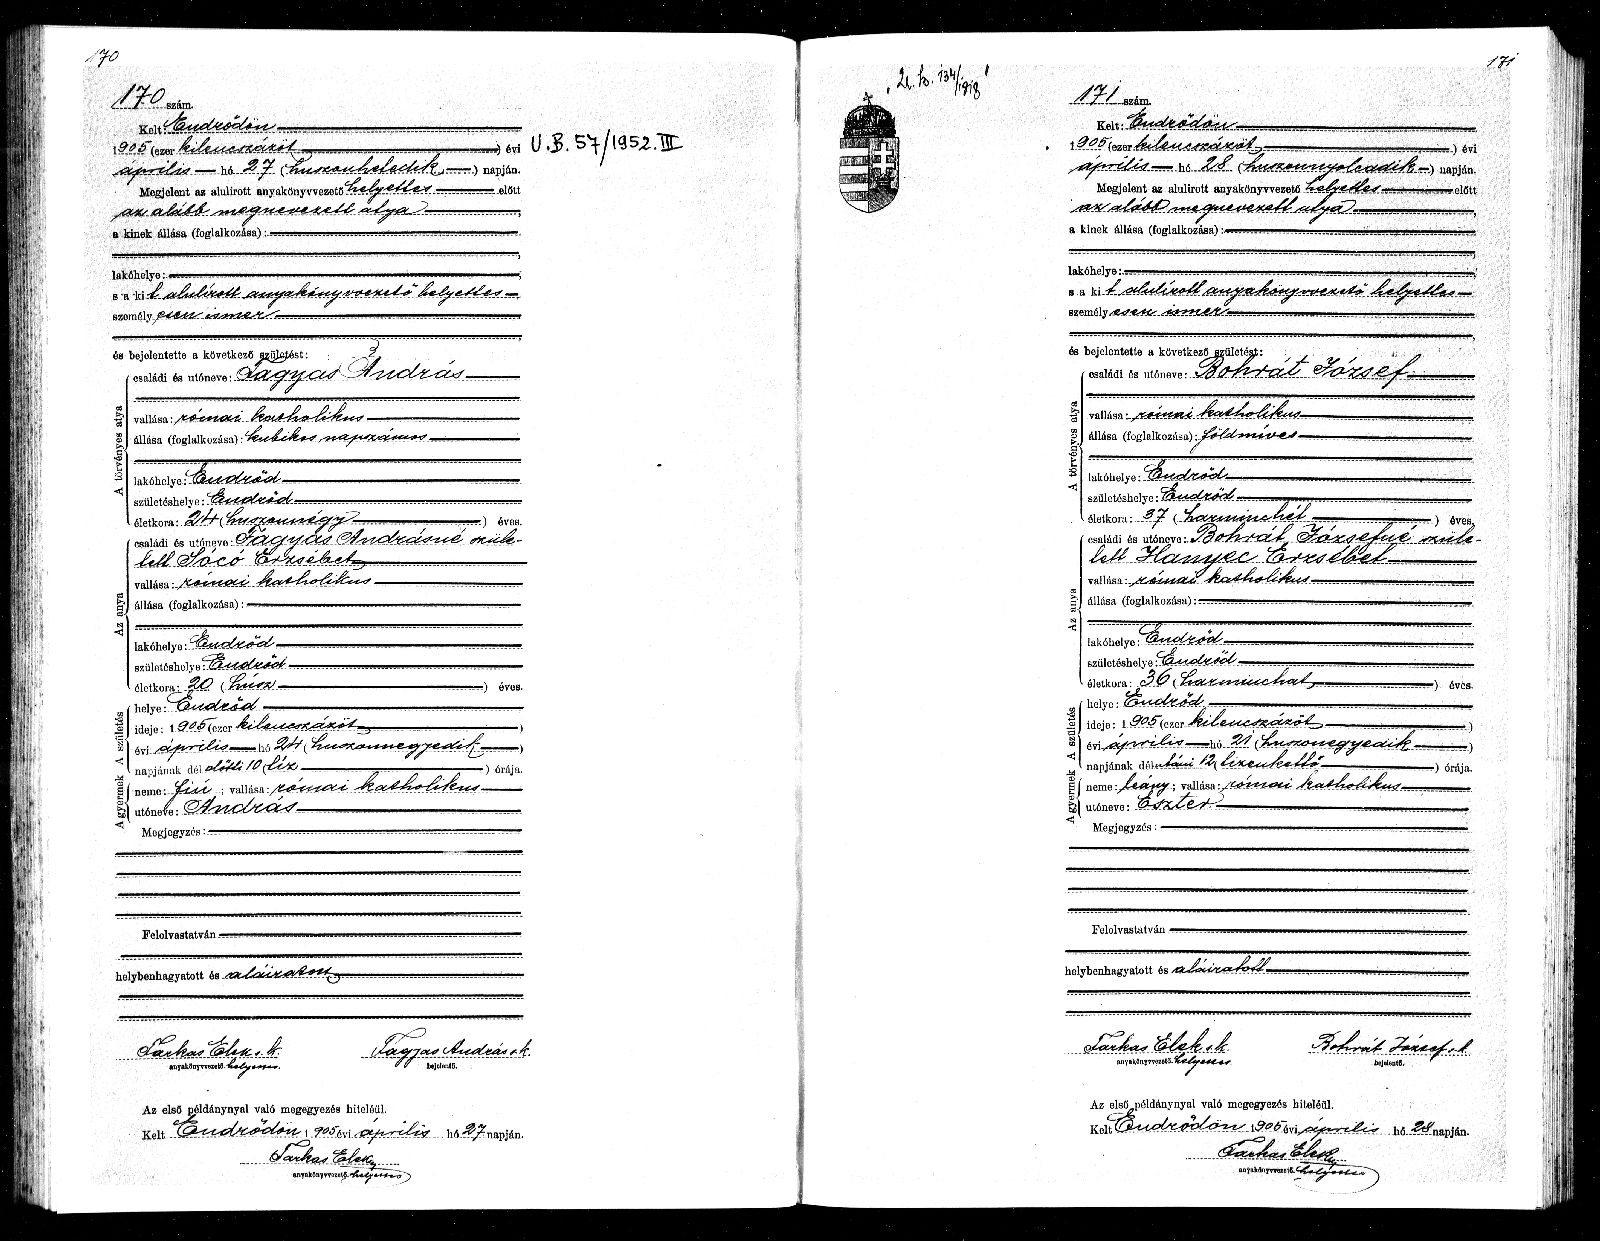 170
170 szám.
Kelt: Endrődön
1905 (ezer kilenczszázöt) évi
április hó 27 (huszonhetedik) napján.
Megjelent az alulirott anyakönyvvezető helyettes előtt
az alább megnevezett atya,
a kinek állása (foglalkozása):
lakóhelye:
s a kit alulírott anyakönyvvezető helyettes
személyesen ismer
és bejelentette a következő születést:
A törvényes atya
családi és utóneve: Fagyas András
vallása: római katholikus
állása (foglalkozása): kubikos napszámos
lakóhelye: Endrőd
születéshelye: Endrőd
életkora: 24 (huszonnégy) éves.
Az anya
családi és utóneve: Fagyas Andrásné szüle-
tett Sócó Erzsébet
vallása: római katholikus
állása (foglalkozása):
lakóhelye: Endrőd
születéshelye: Endrőd
életkora: 20 (húsz) éves.
A születés
helye: Endrőd
ideje: 1905 (ezer kilenczszázöt)
évi április hó 24 (huszonnegyedik)
napjának dél előtti 10 (tíz) órája.
A gyermek
neme: fiú; vallása: római katholikus
utóneve: András
Megjegyzés:
Felolvastatván
helybenhagyatott és aláiratott
Farkas Elek s. k. Fagyas András s. k.
anyakönyvvezető helyettes bejelentő.
Az első példánynyal való megegyezés hiteléül.
Kelt Endrődön 1905 évi április hó 27 napján.
Farkas Elek
anyakönyvvezető helyettes
U.B. 57/1952. III
134/1918
171
171 szám.
Kelt: Endrődön
1905 (ezer kilenczszázöt) évi
április hó 28 (huszonnyolcadik) napján.
Megjelent az alulirott anyakönyvvezető helyettes előtt
az alább megnevezett atya,
a kinek állása (foglalkozása):
lakóhelye:
s a kit alulírott anyakönyvvezető helyettes
személyesen ismer
és bejelentette a következő születést:
A törvényes atya
családi és utóneve: Bohrát József
vallása: római katholikus
állása (foglalkozása): földmíves
lakóhelye: Endrőd
születéshelye: Endrőd
életkora: 37 (harminchét) éves.
Az anya
családi és utóneve: Bohrát Józsefné szüle-
tett Hanyec Erzsébet
vallása: római katholikus
állása (foglalkozása):
lakóhelye: Endrőd
születéshelye: Endrőd
életkora: 36 (harminchat) éves.
A születés
helye: Endrőd
ideje: 1905 (ezer kilenczszázöt)
évi április hó 21 (huszonegyedik)
napjának délutáni 12 (tizenkettő) órája.
A gyermek
neme: leány; vallása: római katholikus
utóneve: Eszter
Megjegyzés:
Felolvastatván
helybenhagyatott és aláiratott
Farkas Elek s. k. Bohrát József s. k.
anyakönyvvezető helyettes bejelentő.
Az első példánynyal való megegyezés hiteléül.
Kelt Endrődön 1905 évi április hó 28 napján.
Farkas Elek
anyakönyvvezető helyettes